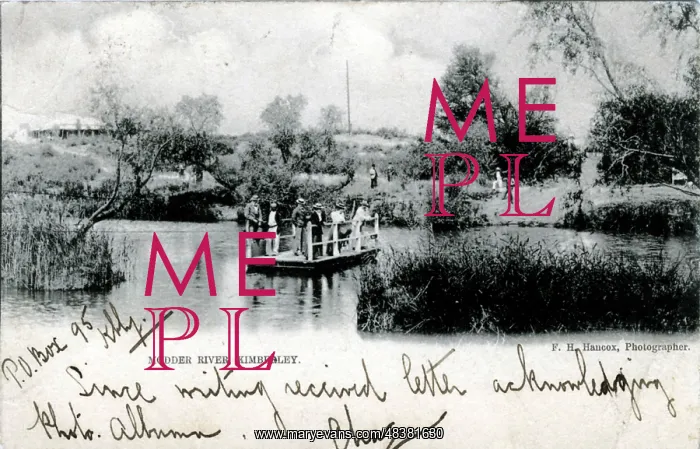 ME
PL
ME
PL
MODDER RIVER, KIMBERLEY.
F. H. Hancox, Photographer.
P.O. Box 95 Kby.
Since writing received letter acknowledging
Photo. Albums.
www.maryevans.com/48381690